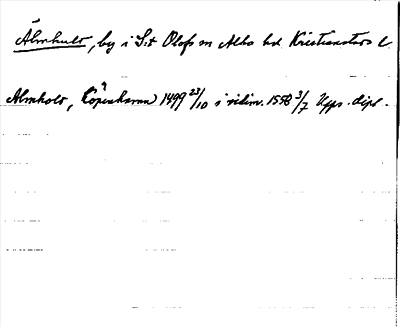 Älmhult, by i S:t Olofs sn Albo hd Kristianstads l.
Almholt, Köpenhamn 1499 23/10 i vidim. 1558 3/7 Upps. dipl.